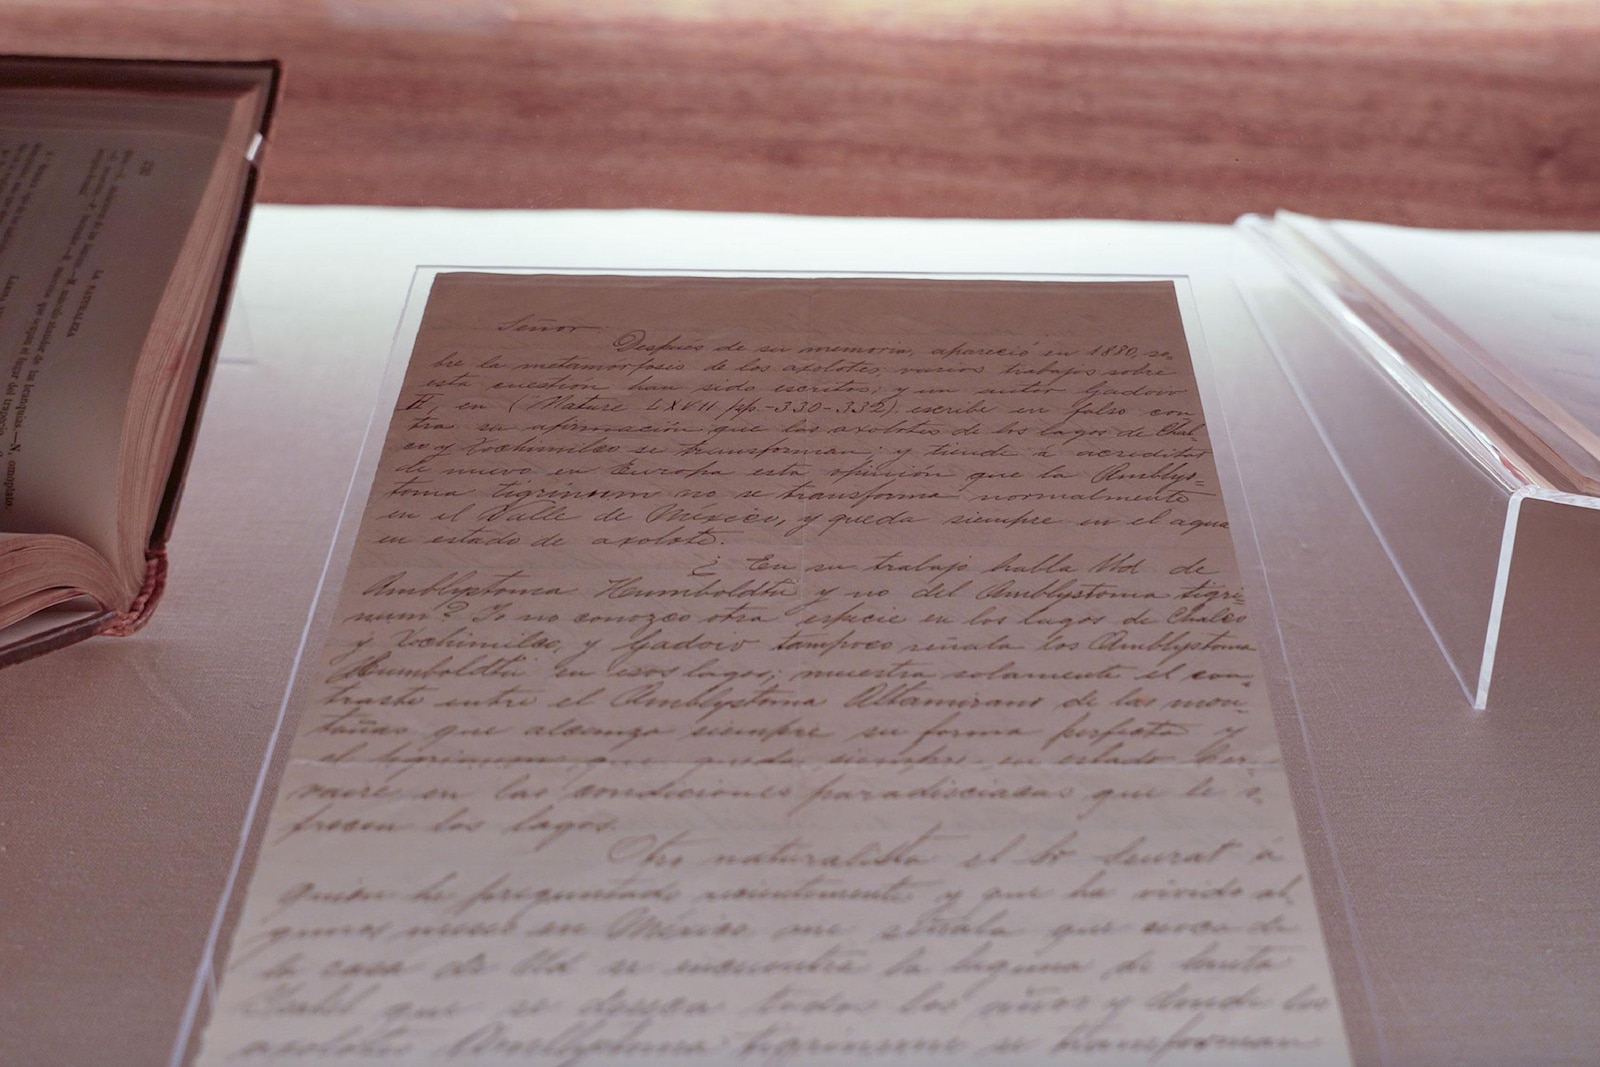 Señor.
Después de su memoria, apareció en 1880, so-
bre la metamorfosis de los axolotes, varios trabajos sobre
esta cuestión han sido escritos; y un autor Gadow
H, en (Nature LXVII pp.-330-332) escribe en falso con
tra su afirmación que los axolotes de los lagos de Chal-
co y Xochimilco se transforman; y tiende á acreditar
de nuevo en Europa esta opinión que la Amblys=
toma tigrinum no se transforma normalmente
en el Valle de México, y queda siempre en el agua
en estado de axolote.
¿ En su trabajo habla Ud de
Amblystoma Humboldtii y no del Amblystoma tigri=
num? Yo no conozco otra especie en los lagos de Chalco
y Xochimilco, y Gadow tampoco señala los Amblystoma
Humboldtii en esos lagos; muestra solamente el con-
traste entre el Amblystoma Altamirano de las mon-
tañas que alcanza siempre su forma perfecta y
el tigrinum que queda siempre en estado lar
vaire en las condiciones paradisciacas que le o-
frecen los lagos.
Otro naturalista el Sr Seurat á
quien he preguntado recientemente y que ha vivido al-
gunos meses en México me señala que cerca de
la casa de Ud se encuentra la laguna de Santa
Isabel que se deseca todos los años y donde los
axolotes Amblystoma tigrinum se transforman
230
LA NATURALEZA